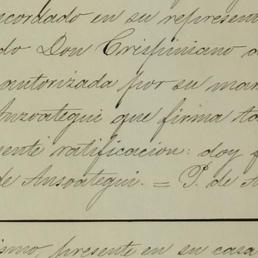 ncordado en su represent
do Don Crispiniano a
autorizada por su mar
Anzoategui que firma ta
mente ratificacion: doy f
de Ansoategui. = P. de A
ismo, presente en su casa